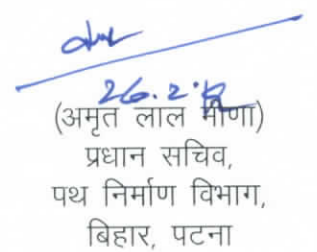 26.2.18
(अमृत लाल मीणा)
प्रधान सचिव,
पथ निर्माण विभाग,
बिहार, पटना